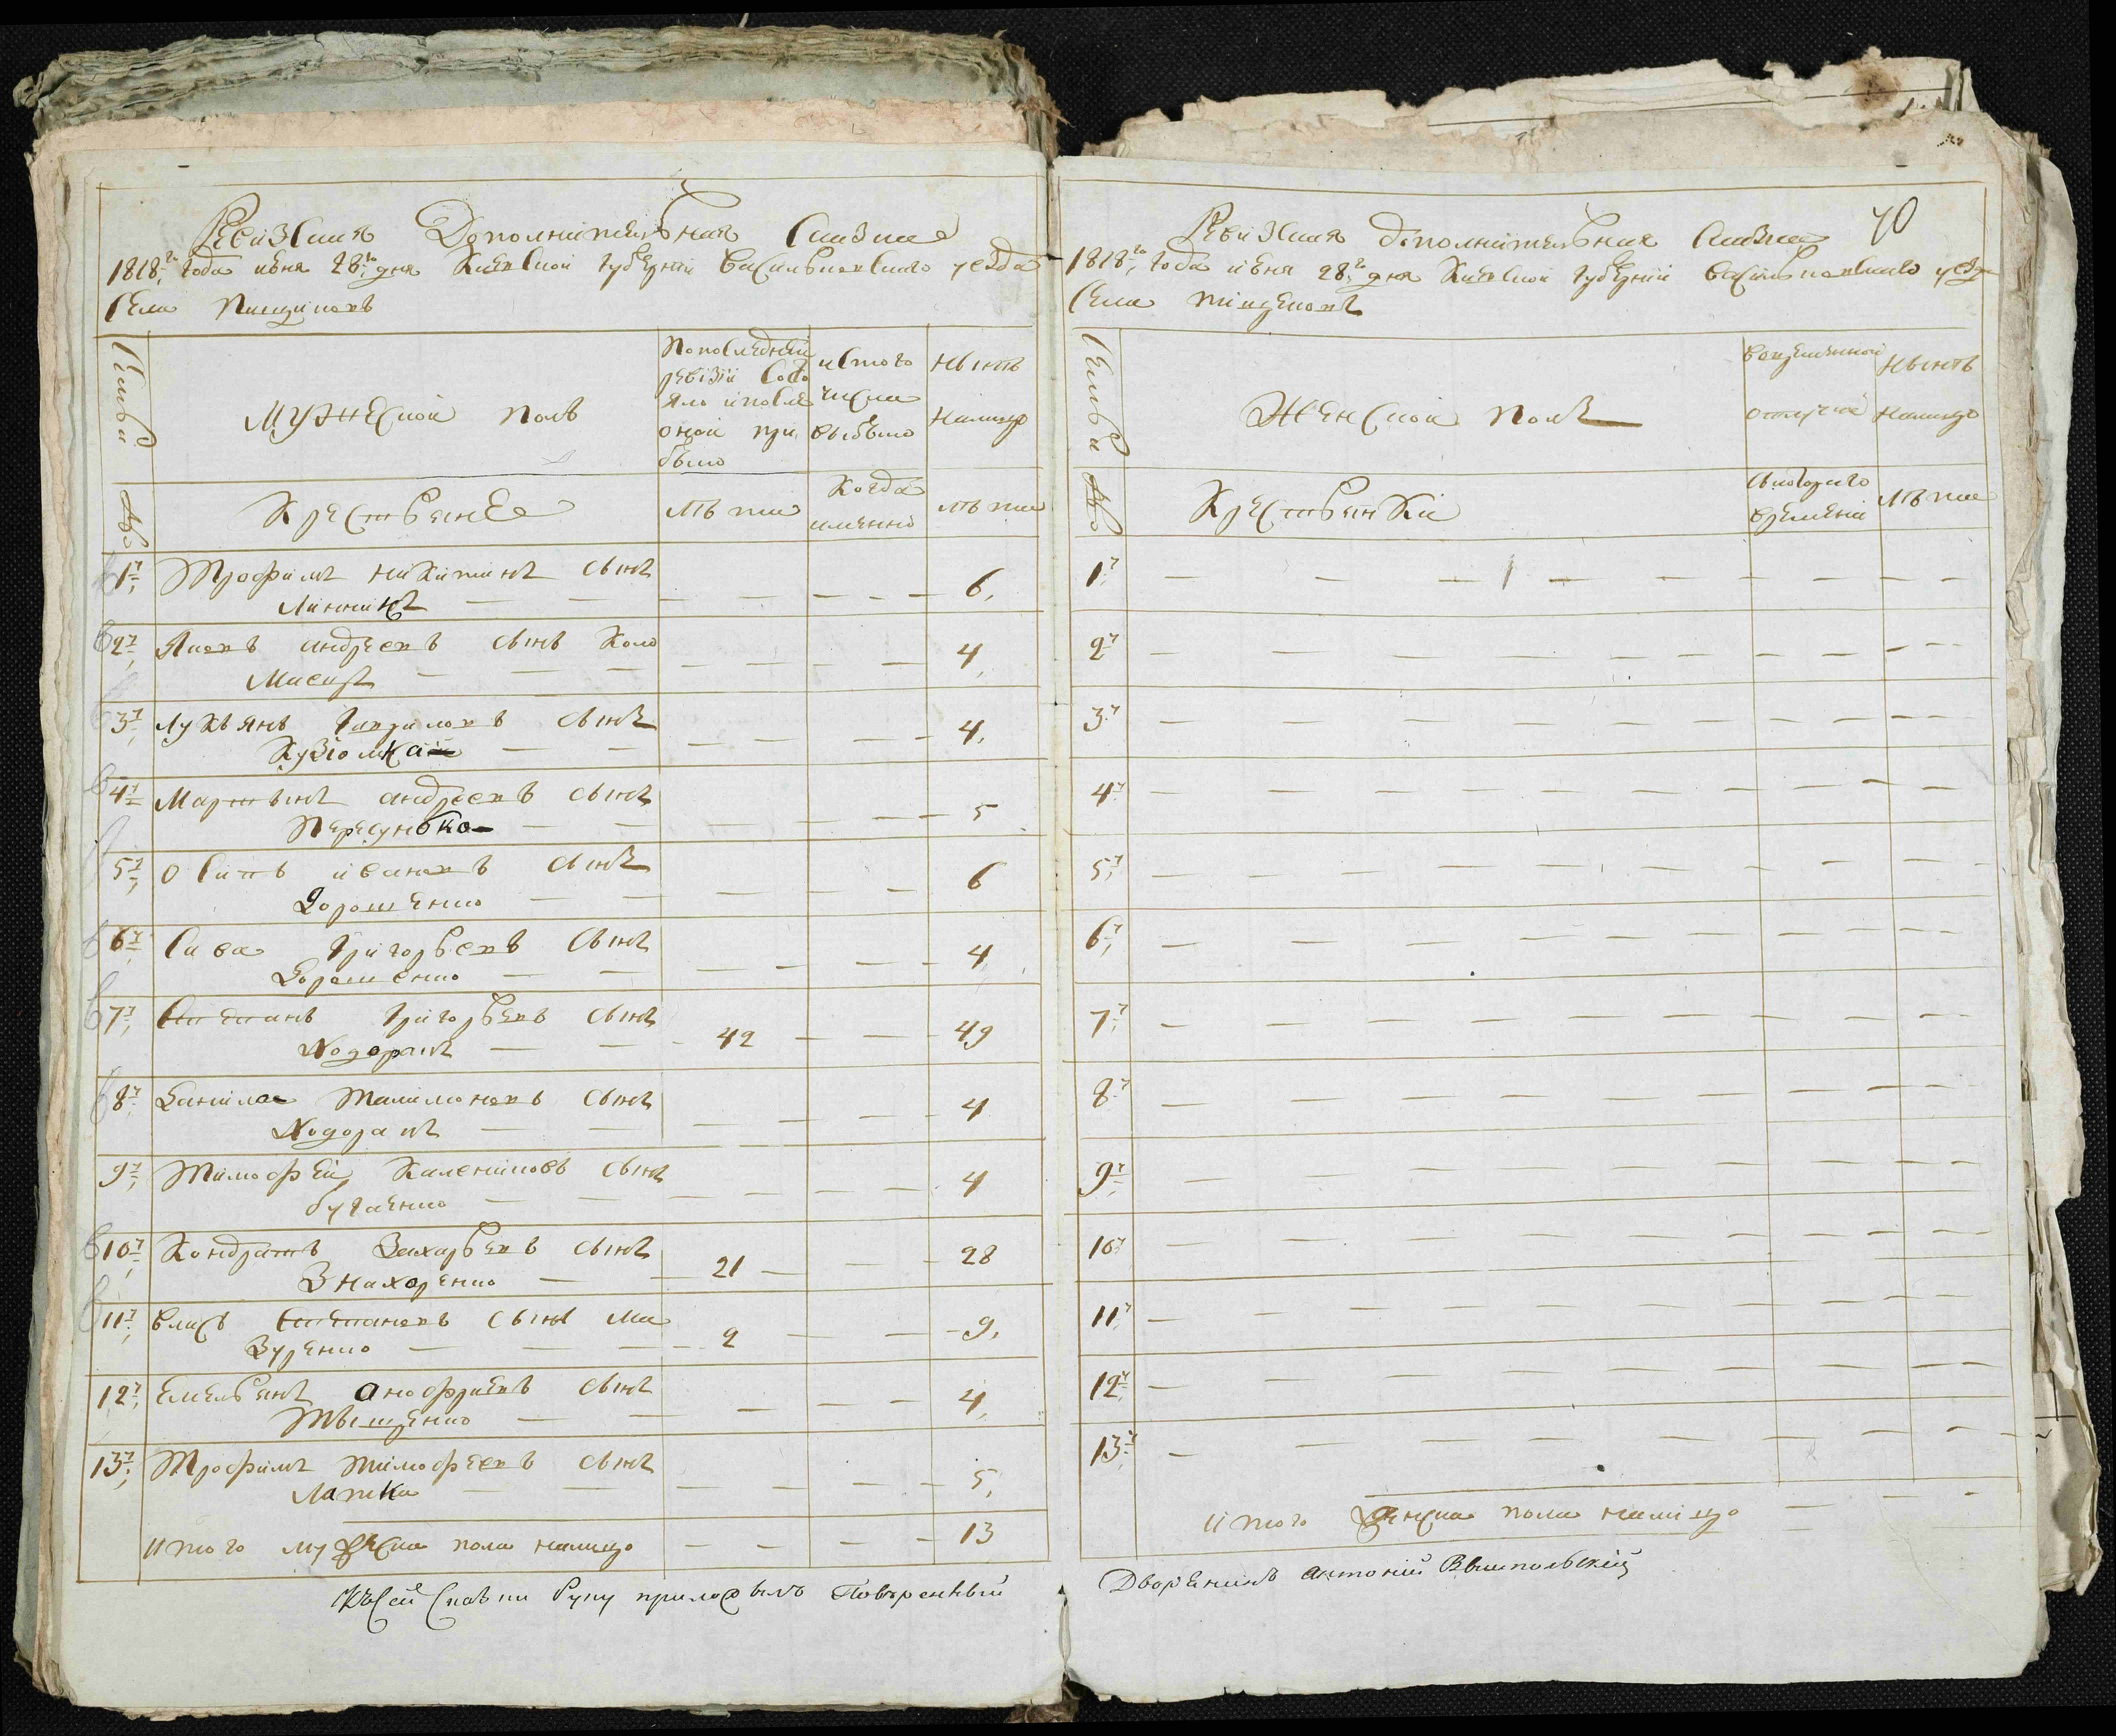 Ревизская Дополнительная Скаска
1818го года июня 28го дня Киевской губернии Васильковского уезда
Села Пищиковъ
Семьи №
Мужеской полъ
По последней ревизии состояло и после оной прибыло
Ис того числа выбыло
Ныне налицо
Крестьяне
Лѣта
Когда именно
Лѣта
1. Трофимъ Никитинъ сынъ
Линникъ — 6.
2. Яковъ андреевъ сынъ Коло
Мысицъ — 4.
3. Лукьянъ Гавриловъ сынъ
Кузіомка — 4.
4. Мартынъ андреевъ сынъ
Пересунько — 5
5. Осипъ ивановъ сынъ
Дорошенко — 6
6. Сава Григорьевъ сынъ
Дорошенко — 4.
7. Степанъ Григорьевъ сынъ
Ходоракъ — 42 — 49
8. Данило Филимоновъ сынъ
Ходоракъ — 4
9. Тимофей Калениковъ сынъ
бугаенко — 4
10. Кондратъ Захарьевъ сынъ
Знахоренко — 21 — 28
11. Власъ Степановъ сынъ Ма
Зуренко — 2 — 9.
12. Емельянъ анофриевъ сынъ
Тыщенко — 4.
13. Трофимъ тимофеевъ сынъ
Латка — 5.
итого мужеска пола налицо — 13
Къ сей скаски руку приложылъ Повѣренный
70
Ревизская дополнительная Скаска
1818го года июня 28го дня Киевской губернии Васильковского уезда
Села Пищиковъ
Семьи №
Женской Полъ
Во временной отлучке
Ныне налицо
Крестьянки
С которого времени
Лѣта
1.
2.
3.
4.
5.
6.
7.
8.
9.
10.
11.
12.
13.
итого женска пола налицо —
Дворянинъ антоній Вышпольскій